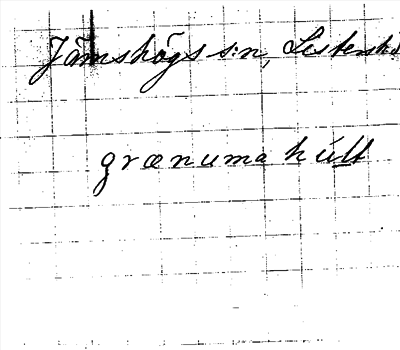 Jämshögs s:n, Listersh
grænuma húlt